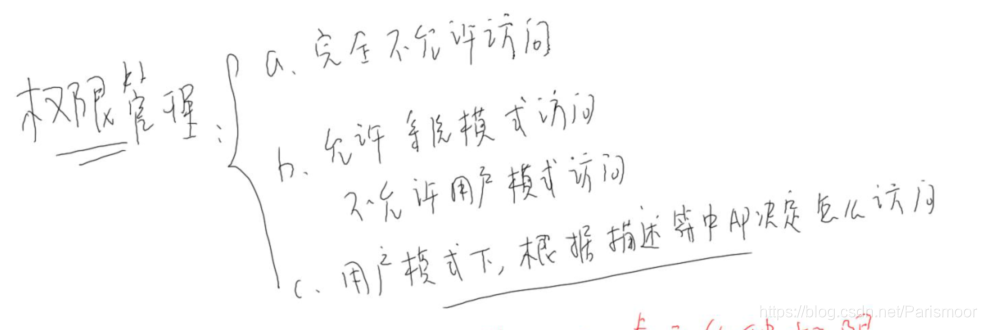 权限管理:
a. 完全不允许访问
b. 允许系统模式访问
不允许用户模式访问
c. 用户模式下, 根据描述符中AP决定怎么访问
https://blog.csdn.net/Parismoor